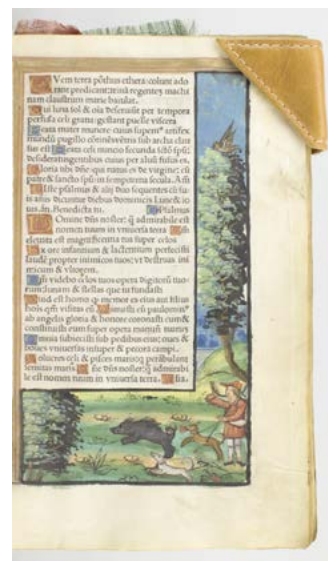 Vem terra põthus ethera: colunt ado
rant predicant: trinã regentẽ machi
nam claustrum marie baiulat.
ui luna sol & oĩa deseruiũt per tempora
perfusa celi gratia: gestant puelle viscera
eata mater munere cuius supernꝰ artifex
mundũ pugillo cõtinẽs vẽtris sub archa clau
sus est eata celi nuncio fecunda sctõ spũ:
desideratus gentibus cuius per aluũ fusus est.
loria tibi dñe qui natus es de virgine: cũ
patre & sancto spũ in sempiterna secula. Amẽ
Iste psalmus & alij duo sequentes cũ su
is añis dicuntur diebus dominicis Lune & io
uis. añ. Benedicta tu. Psalmus
Omine dñs noster: q̃ admirabile est
nomen tuum in vniuersa terra
eleuata est magnificentia tua super celos
x ore infantium & lactentium perfecisti
laudẽ propter inimicos tuos: vt destruas ini
micum & vltorem.
videbo celos tuos opera digitorũ tuo
rum: lunam & stellas que tu fundasti
uid est homo q̃ memor es eius aut filius
hoĩs qm̃ visitas eũ inuisti eũ paulominꝰ
ab angelis gloria & honore coronasti eum &
constituisti eum super opera manuũ tuarũ
mnia subiecisti sub pedibus eius: oues &
boues vniuersas insuper & pecora campi.
olucres celi & pisces maris q̃ perãbulant
semitas maris ñe dñs noster: q̃ admirabi
le est nomen tuum in vniuersa terra.